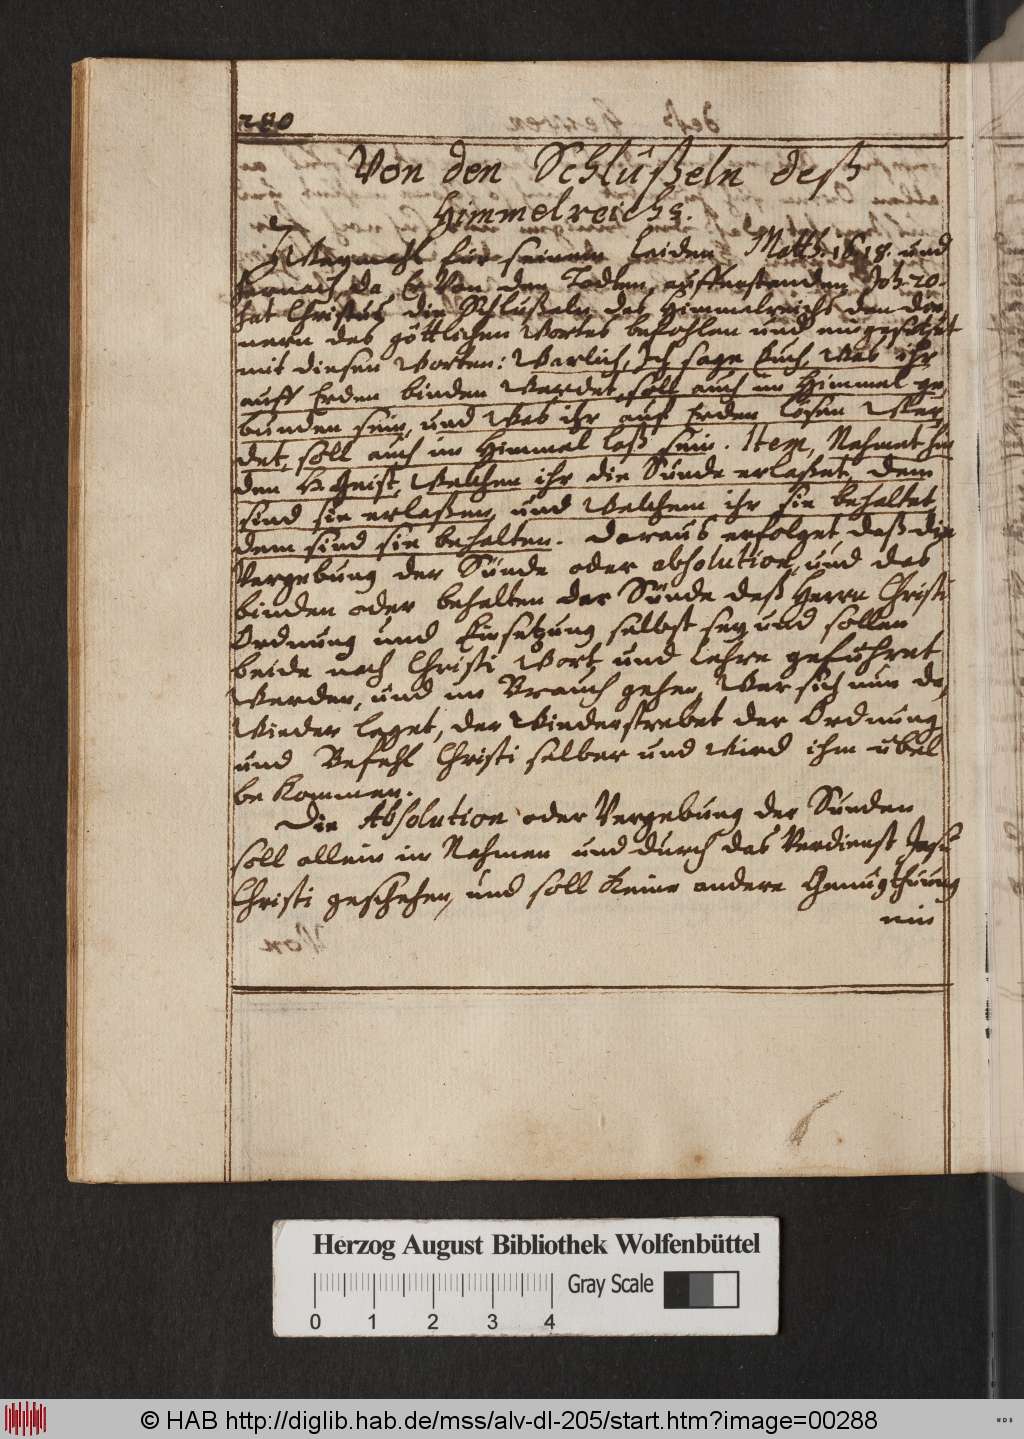 280
Von den Schlüßeln deß
Himmelreichs.
für seinem Leiden Matth. 16. 18. und
hernach, da Er Von den Todten aufferstanden Joh. 20.
hat Christus die Schlüßeln des Himmelreichs den die-
nern des göttlichen Wortes befohlen und eingesetzet
mit diesen Worten: Warlich, Ich sage Euch, Was ihr
auff Erden binden Werdet, soll auch im Himmel ge-
bunden sein, und Was ihr auf Erden lösen Wer-
det, soll auch im Himmel loß sein. Item, Nehmet hin
den H. Geist, Welchen ihr die Sünde erlaßet, dem
sind sie erlaßen, und Welchem ihr sie behaltet
dem sind sie behalten. Daraus erfolget, daß die
Vergebung der Sünde oder absolution, und das
binden oder behalten der Sünde deß Herrn Christi
Ordnung und Einsetzung selbst sey und sollen
beide nach Christi Wort und Lehre geführet
Werden, und im Brauch gehen, Wer sich nun da-
Wieder leget, der Wiederstrebet der Ordnung
und Befehl Christi selber und Wird ihm übel
bekommen.
Die Absolution oder Vergebung der Sünden
soll allein im Nahmen und durch das Verdienst Jesu
Christi geschehen, und soll Keine andere Genugthuung
ein
Herzog August Bibliothek Wolfenbüttel
Gray Scale
0 1 2 3 4
© HAB http://diglib.hab.de/mss/alv-dl-205/start.htm?image=00288